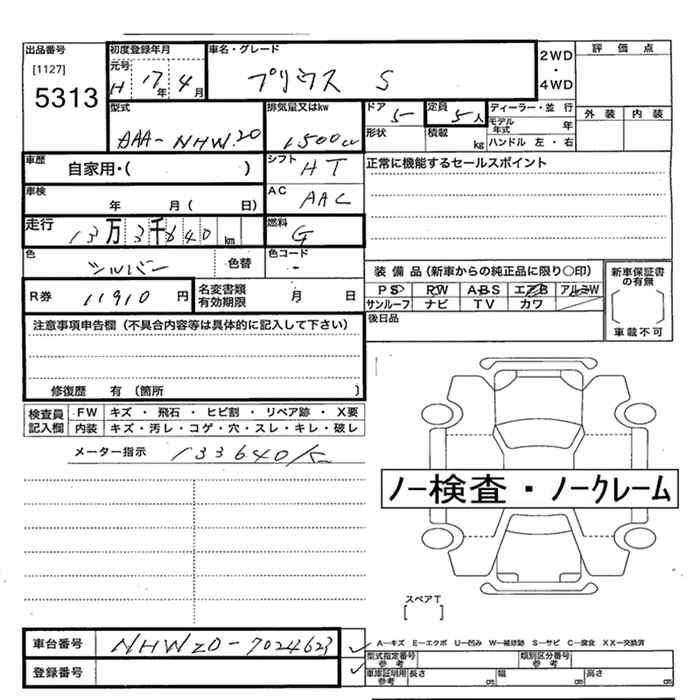 出品番号
[1127]
5313
初度登録年月
元号
H 17年 4月
車名・グレード
プリウス S
2WD
・
4WD
評価点
外装 内装
型式
DAA-NHW20
排気量又はkw
1500cc
ドア
5
形状
定員
5人
積載
kg
ディーラー・並 行
モデル年式 年
ハンドル 左・右
車歴
自家用・( )
シフト
AT
正常に機能するセールスポイント
車検
年 月( 日)
AC
AAC
走行
13万3千640km
燃料
G
色
シルバー
色替
色コード
-
装備品(新車からの純正品に限り○印)
PS RW ABS エアB アルミW
サンルーフ ナビ TV カワ
新車保証書の有無
[ ]
車載不可
R券 11910円
名変書類有効期限 月 日
後日品
注意事項申告欄(不具合内容等は具体的に記入して下さい)
修復歴 有〔箇所 〕
検査員記入欄
FW キズ・飛石・ヒビ割・リペア跡・X要
内装 キズ・汚レ・コゲ・穴・スレ・キレ・破レ
メーター指示 133640k
ノー検査・ノークレーム
スペアT
[ ]
車台番号 NHW20-7024623
登録番号
A―キズ E―エクボ U―凹み W―補修跡 S―サビ C―腐食 XX―交換済
型式指定番号参考
類別区分番号参考
車庫証明用参考 長さ cm 幅 cm 高さ cm